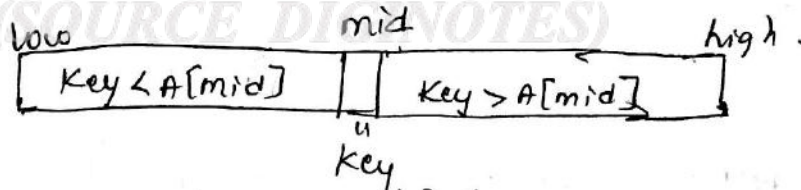 (SOURCE DIGINOTES)
low mid high
Key < A[mid] Key > A[mid]
Key